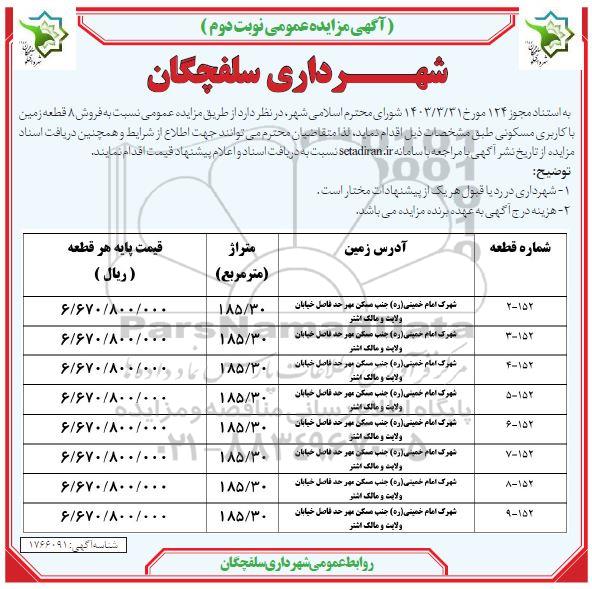 ( آگهی مزایده عمومی نوبت دوم )
شهرداری سلفچگان
به استناد مجوز ۱۲۴ مورخ ۱۴۰۳/۳/۳۱ شورای محترم اسلامی شهر، در نظر دارد از طریق مزایده عمومی نسبت به فروش ۸ قطعه زمین
با کاربری مسکونی طبق مشخصات ذیل اقدام نماید. لذا متقاضیان محترم می توانند جهت اطلاع از شرایط و همچنین دریافت اسناد
مزایده از تاریخ نشر آگهی با مراجعه با سامانه setadiran.ir نسبت به دریافت اسناد و اعلام پیشنهاد قیمت اقدام نمایند.
توضیح:
۱- شهرداری در رد یا قبول هر یک از پیشنهادات مختار است .
۲- هزینه درج آگهی به عهده برنده مزایده می باشد.
شماره قطعه آدرس زمین متراژ (مترمربع) قیمت پایه هر قطعه ( ریال )
۲-۱۵۲ شهرک امام خمینی(ره) جنب مسکن مهر حد فاصل خیابان ولایت و مالک اشتر ۱۸۵/۳۰ ۶/۶۷۰/۸۰۰/۰۰۰
۳-۱۵۲ شهرک امام خمینی(ره) جنب مسکن مهر حد فاصل خیابان ولایت و مالک اشتر ۱۸۵/۳۰ ۶/۶۷۰/۸۰۰/۰۰۰
۴-۱۵۲ شهرک امام خمینی(ره) جنب مسکن مهر حد فاصل خیابان ولایت و مالک اشتر ۱۸۵/۳۰ ۶/۶۷۰/۸۰۰/۰۰۰
۵-۱۵۲ شهرک امام خمینی(ره) جنب مسکن مهر حد فاصل خیابان ولایت و مالک اشتر ۱۸۵/۳۰ ۶/۶۷۰/۸۰۰/۰۰۰
۶-۱۵۲ شهرک امام خمینی(ره) جنب مسکن مهر حد فاصل خیابان ولایت و مالک اشتر ۱۸۵/۳۰ ۶/۶۷۰/۸۰۰/۰۰۰
۷-۱۵۲ شهرک امام خمینی(ره) جنب مسکن مهر حد فاصل خیابان ولایت و مالک اشتر ۱۸۵/۳۰ ۶/۶۷۰/۸۰۰/۰۰۰
۸-۱۵۲ شهرک امام خمینی(ره) جنب مسکن مهر حد فاصل خیابان ولایت و مالک اشتر ۱۸۵/۳۰ ۶/۶۷۰/۸۰۰/۰۰۰
۹-۱۵۲ شهرک امام خمینی(ره) جنب مسکن مهر حد فاصل خیابان ولایت و مالک اشتر ۱۸۵/۳۰ ۶/۶۷۰/۸۰۰/۰۰۰
شناسه آگهی: ۱۷۶۶۰۹۱
روابط عمومی شهرداری سلفچگان